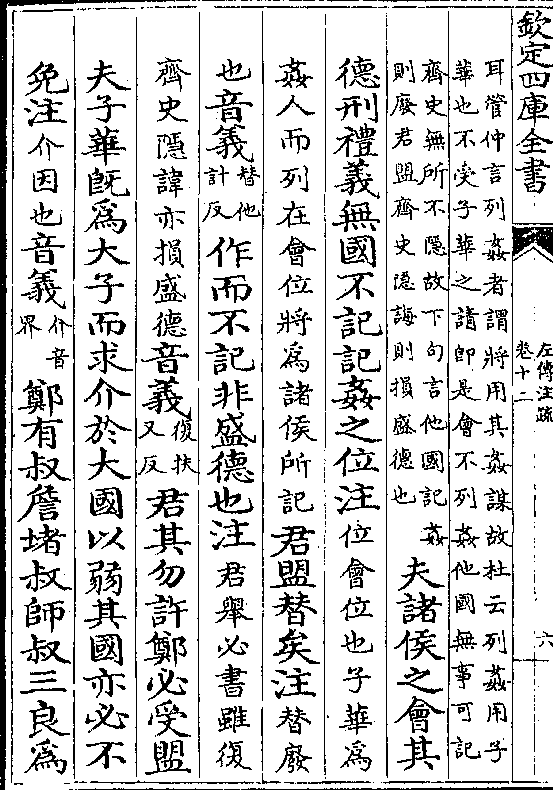 欽定四庫全書
左傳注疏
卷十二
六
耳管仲言列姦者謂將用其姦謀故杜云列姦用子
華也不受子華之請即是會不列姦他國無事可記
齊史無所不隱故下句言他國記姦
則廢君盟齊史隱諱則損盛德也
夫諸侯之會其
德刑禮義無國不記記姦之位注位會位也子華為
姦人而列在會位將為諸侯所記君盟替矣注替廢
也音義替他計反作而不記非盛德也注君舉必書雖復
齊史隱諱亦損盛德音義復扶又反君其勿許鄭必受盟
夫子華既為大子而求介於大國以弱其國亦必不
免注介因也音義介音界鄭有叔詹堵叔師叔三良為